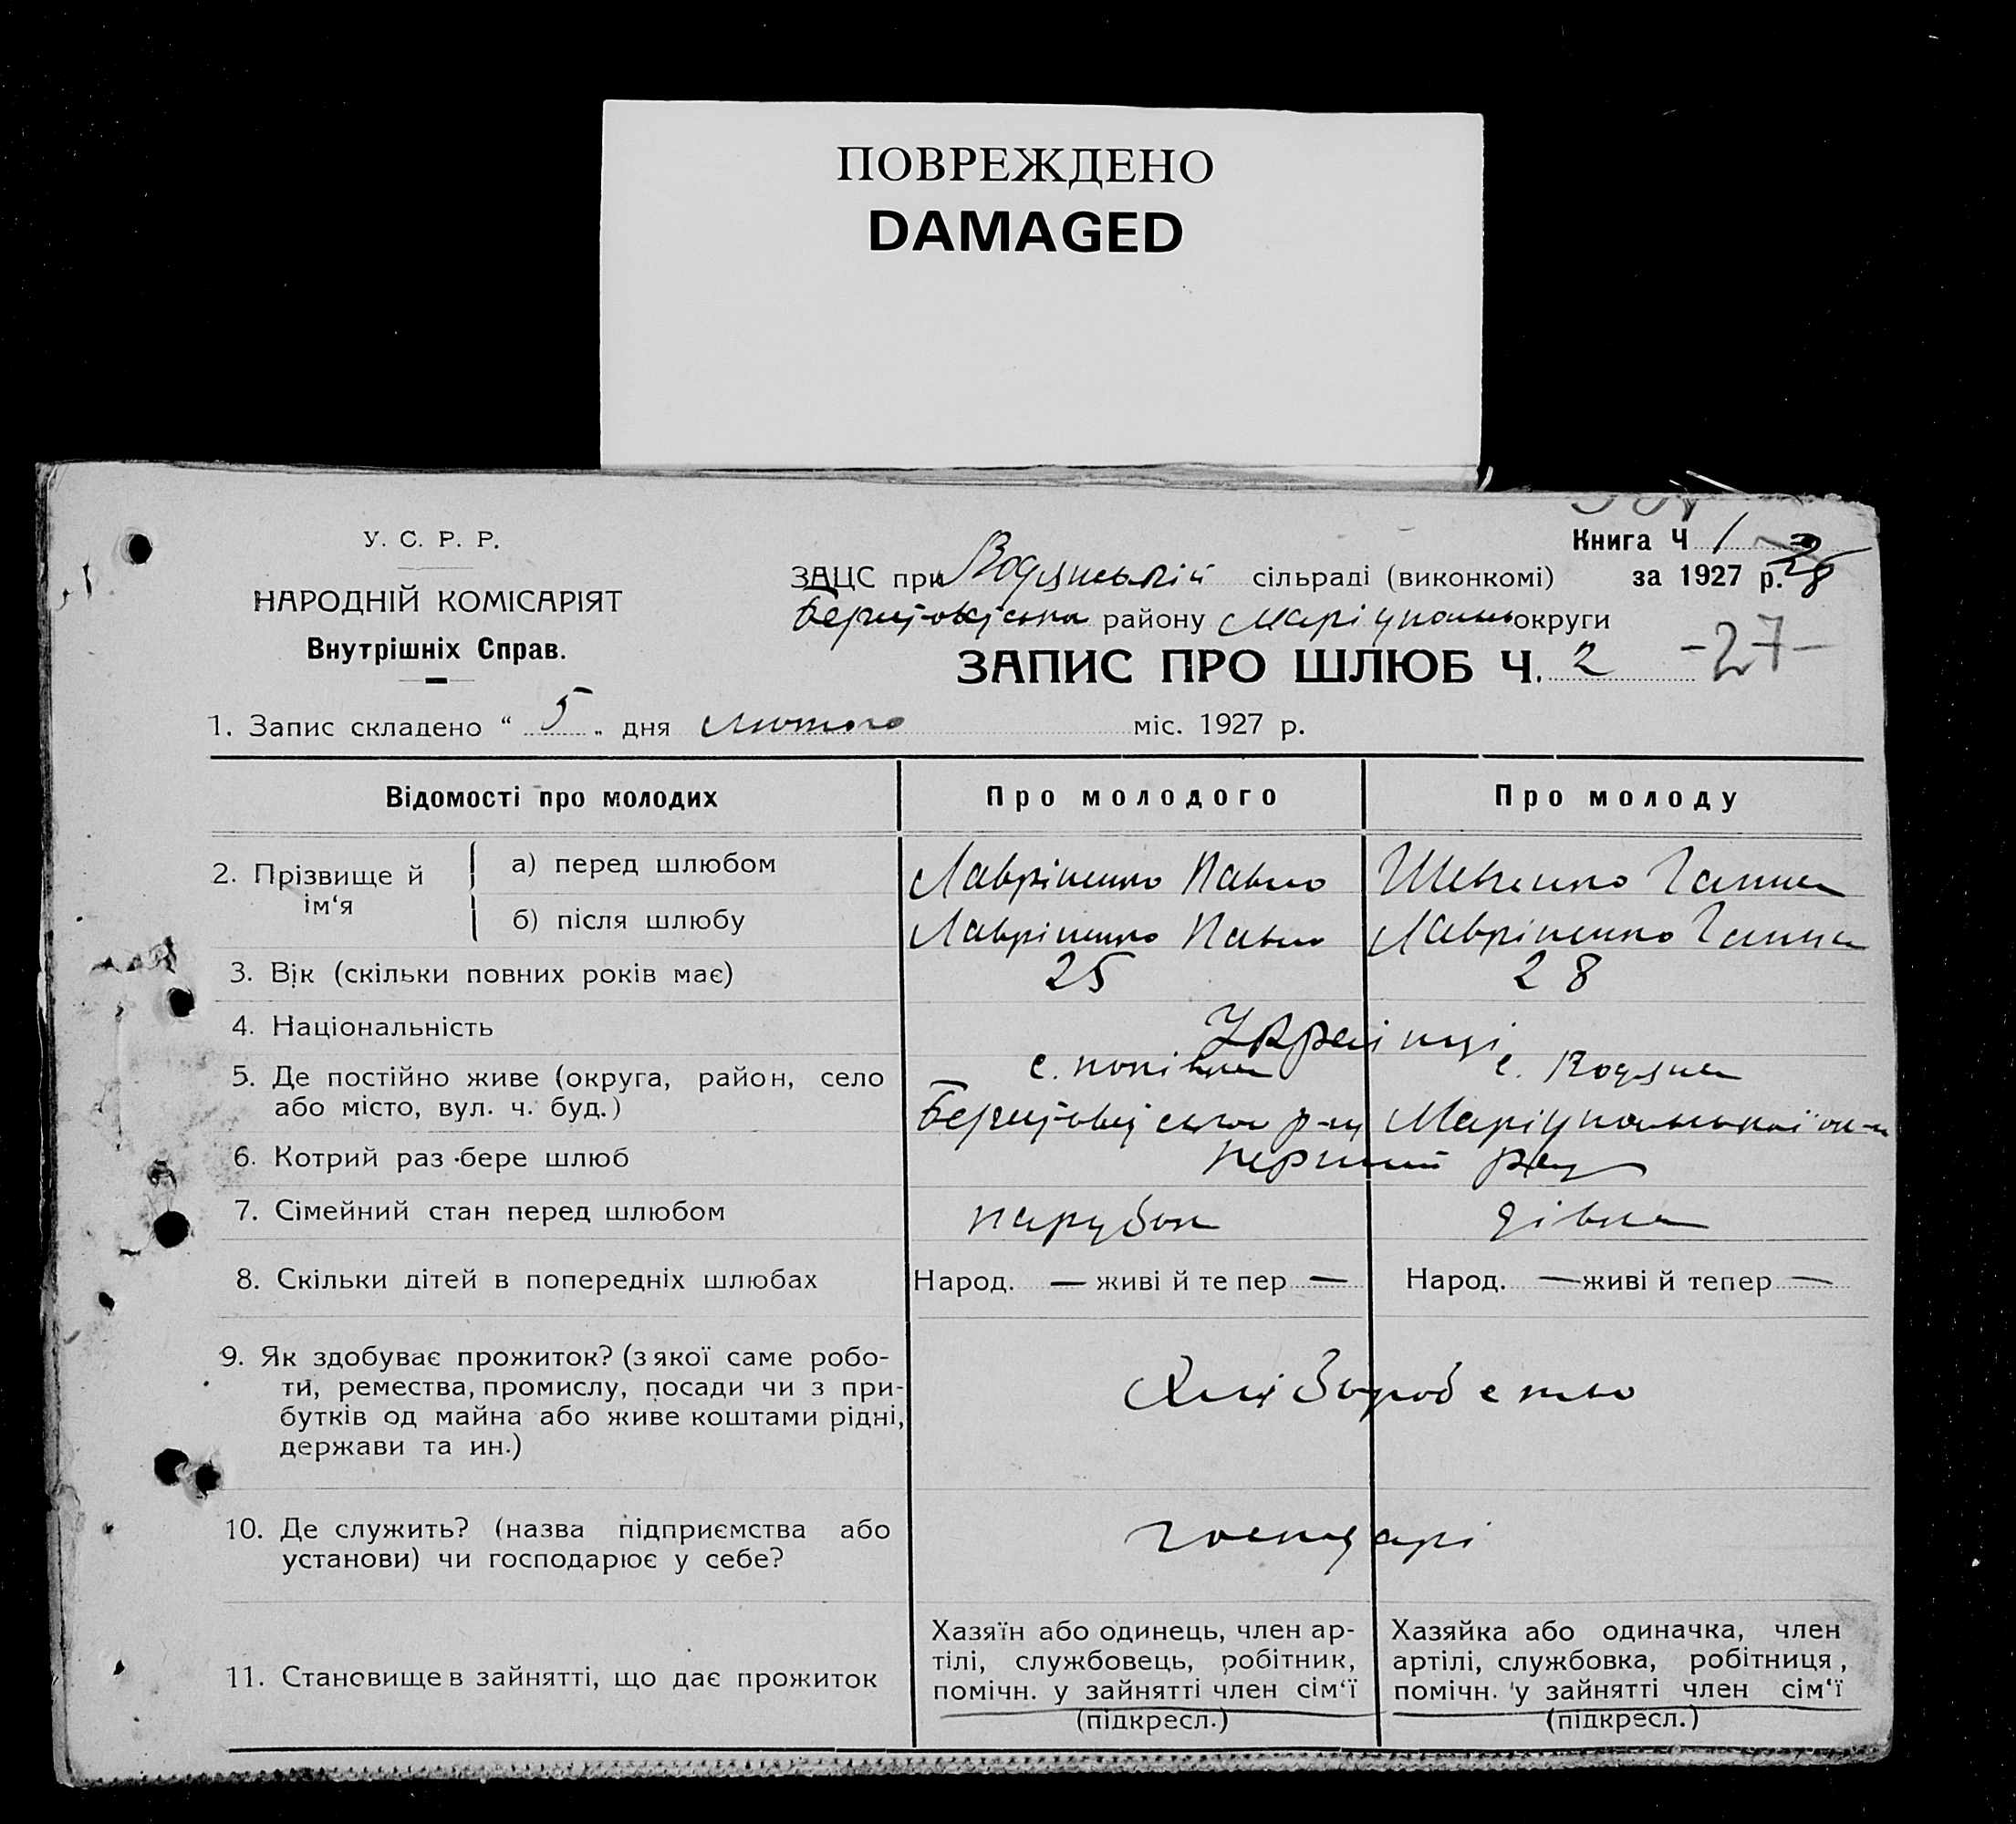 ПОВРЕЖДЕНО
DAMAGED
У. С. Р. Р.
НАРОДНІЙ КОМІСАРІЯТ
Внутрішніх Справ.
Книга Ч 1
28
ЗАЦС при Водянській сільраді (виконкомі) за 1927 р.
району Маріупольс округи
ЗАПИС ПРО ШЛЮБ Ч. 2 -27-
1. Запис складено “ 5 „ дня Лютого міс. 1927 р.
Відомості про молодих Про молодого Про молоду
2. Прізвище й ім‘я
а) перед шлюбом Лавріненко Павло Шевченко Ганна
б) після шлюбу Лавріненко Павло Лавріненко Ганна
3. Вік (скільки повних років має) 25 28
4. Національність Україінці
5. Де постійно живе (округа, район, село с. Попівка с. Водяна
або місто, вул. ч. буд.) р-ну Маріупольської ок-и
6. Котрий раз бере шлюб перший раз
7. Сімейний стан перед шлюбом парубок дівка
8. Скільки дітей в попередніх шлюбах Народ. — живі й тепер — Народ. — живі й тепер —
9. Як здобуває прожиток? (з якої саме робо-
ти, ремества, промислу, посади чи з при- Хліборобство
бутків од майна або живе коштами рідні,
держави та ин.)
10. Де служить? (назва підприємства або господарі
установи) чи господарює у себе?
11. Становище в зайнятті, що дає прожиток
Хазяїн або одинець, член ар-
тілі, службовець, робітник,
помічн. у зайнятті член сім‘ї
(підкресл.)
Хазяйка або одиначка, член
артілі, службовка, робітниця,
помічн. у зайнятті член сім‘ї
(підкресл.)